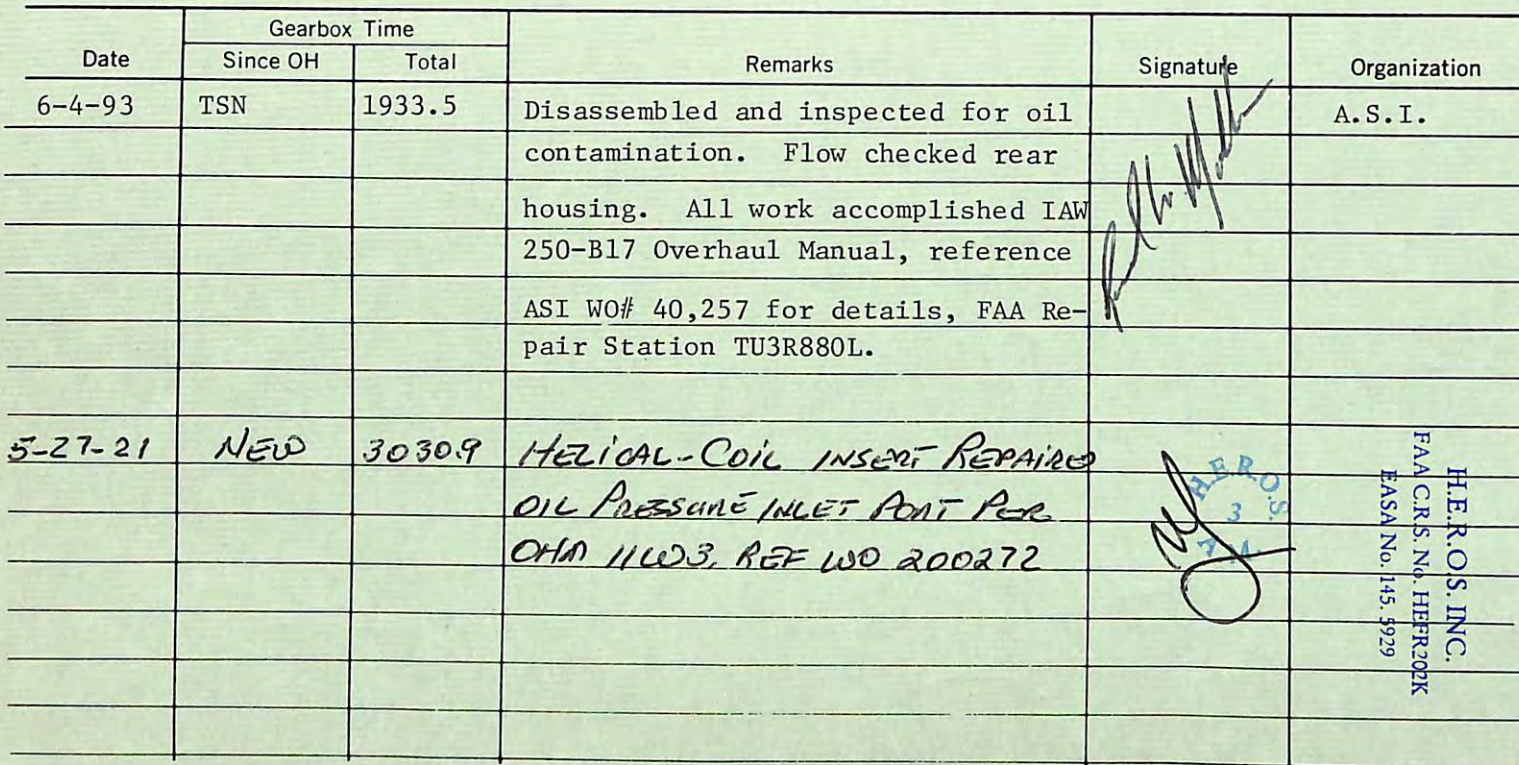 Gearbox Time
Date Since OH Total Remarks Signature Organization
6-4-93 TSN 1933.5 Disassembled and inspected for oil A.S.I.
contamination. Flow checked rear
housing. All work accomplished IAW
250-B17 Overhaul Manual, reference
ASI WO# 40,257 for details, FAA Re-
pair Station TU3R880L.
5-27-21 NEW 3030.9 HELICAL-COIL INSERT REPAIRED
OIL PRESSURE INLET PORT PER
OHM 11W3, REF WO 200272
H.E.R.O.S.
3
H.E.R.O.S. INC.
FAA C.R.S. No. HEFR202K
EASA No. 145.5929